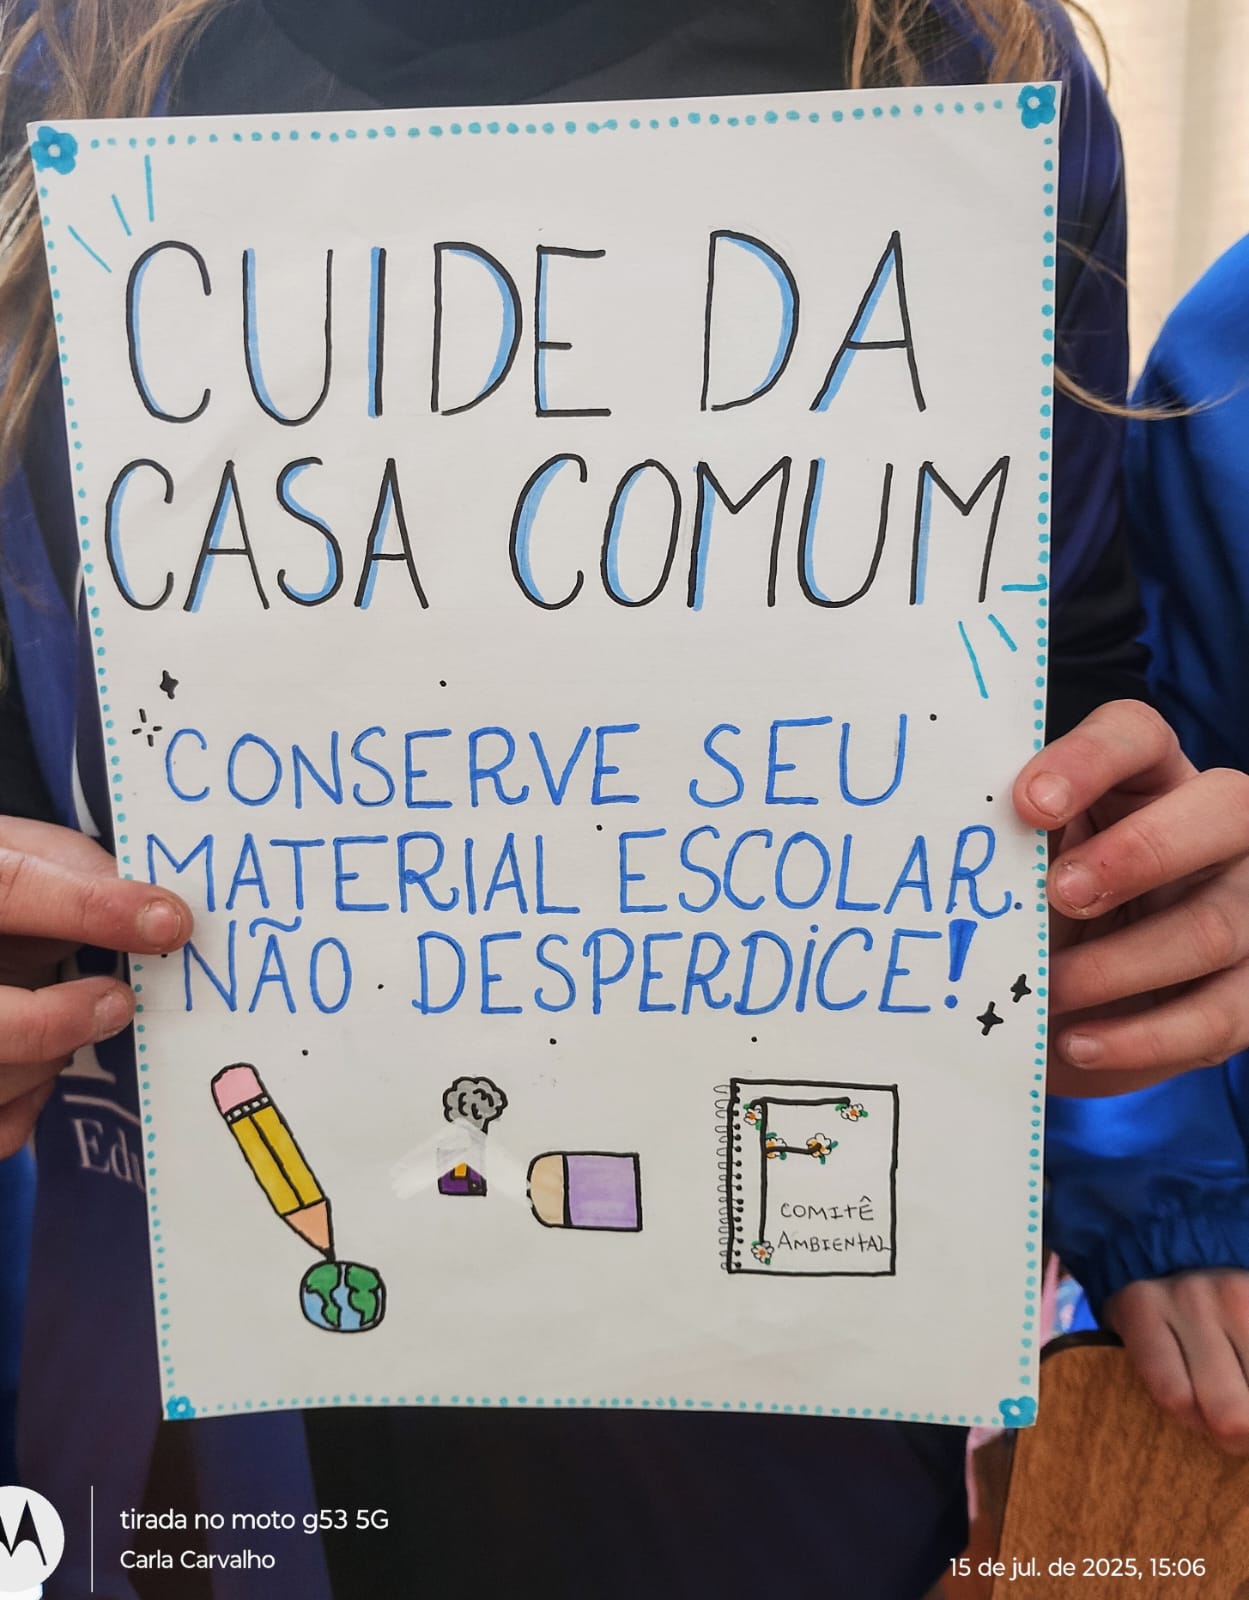 CUIDE DA
CASA COMUM
CONSERVE SEU
MATERIAL ESCOLAR.
NÃO DESPERDICE!
COMITÊ
AMBIENTAL
Edu
tirada no moto g53 5G
Carla Carvalho
15 de jul. de 2025, 15:06